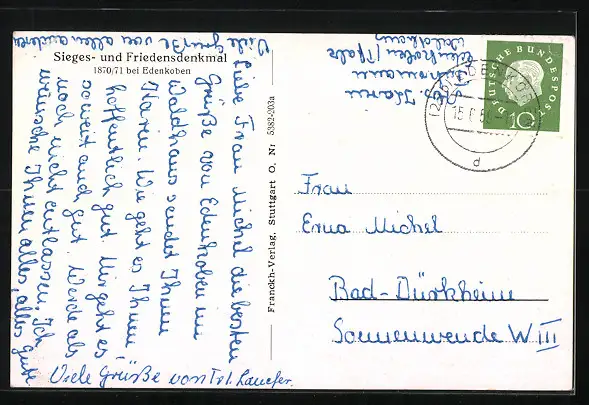 Sieges- und Friedensdenkmal
1870/71 bei Edenkoben
Liebe Frau Michel die besten
Grüße von Edenkoben im
Waldhaus sendet Ihnen
Karin. Wie geht es Ihnen,
hoffentlich gut. Mir geht es
soweit auch gut. Werde als
noch nicht entlassen. Ich
wünsche Ihnen alles, alles gute
Viele Grüße von Frl.
Viele Grüße von allen anderen
Franckh-Verlag, Stuttgart O, Nr. 5382-203a
Karin
Edenkoben/Pfalz
Waldhaus
DEUTSCHE BUNDESPOST
10
d
Frau
Erna Michel
Bad-Dürkheim
Sonnenwende W III